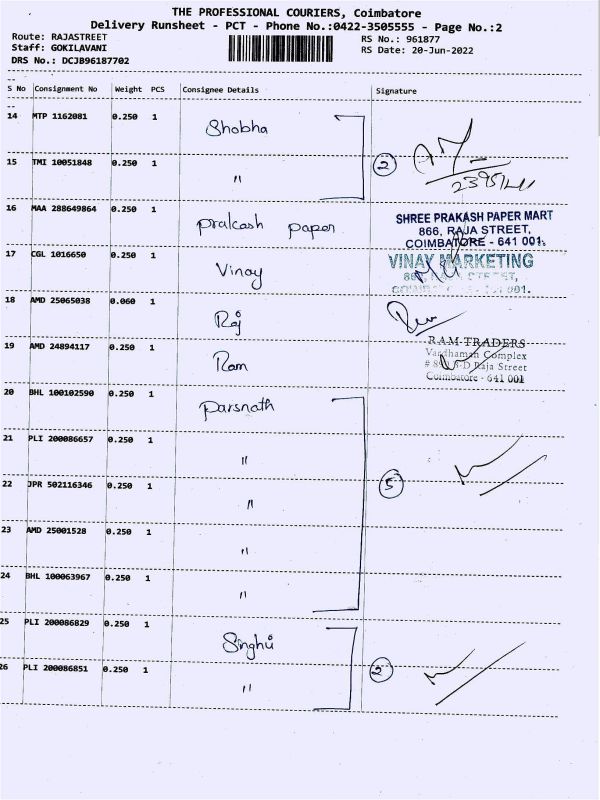 THE PROFESSIONAL COURIERS, Coimbatore
Delivery Runsheet - PCT - Phone No.:0422-3505555 - Page No.:2
Route: RAJASTREET
Staff: GOKILAVANI
DRS No.: DCJB96187702
RS No.: 961877
RS Date: 20-Jun-2022
S No Consignment No Weight PCS Consignee Details Signature
14 MTP 1162081 0.250 1 Shobha
15 TMI 10051848 0.250 1 " 2
16 MAA 288649864 0.250 1 pralcash paper
SHREE PRAKASH PAPER MART
866, RAJA STREET,
COIMBATORE - 641 001.
17 CGL 1016650 0.250 1 Vinay
VINAY MARKETING
18 AMD 25065038 0.060 1 Raj
19 AMD 24894117 0.250 1 Ram
RAM TRADERS
Vardhaman Complex
Raja Street
Coimbatore - 641 001
20 BHL 100102590 0.250 1 parsnath
21 PLI 200086657 0.250 1 "
22 JPR 502116346 0.250 1 " 5
23 AMD 25001528 0.250 1 "
24 BHL 100063967 0.250 1 "
25 PLI 200086829 0.250 1 Singhvi
26 PLI 200086851 0.250 1 " 2